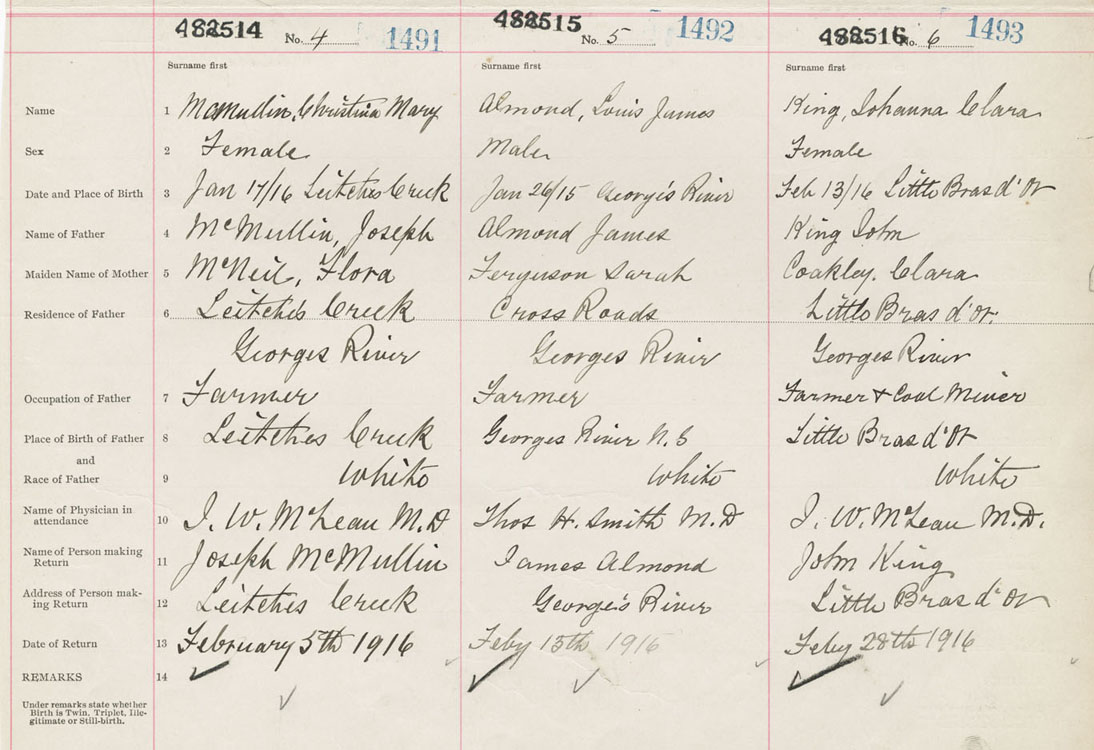 488514 No. 4 1491 488515 No. 5 1492 488516 No. 6 1493
Surname first Surname first Surname first
Name 1 McMullin, Christina Mary Almond, Louis James King, Johanna Clara
Sex 2 Female Male Female
Date and Place of Birth 3 Jan 17/16 Leitches Creek Jan 26/15 George's River Feb 13/16 Little Bras d'Or
Name of Father 4 McMullin, Joseph Almond James King John
Maiden Name of Mother 5 McNeil, Flora Ferguson Sarah Coakley. Clara
Residence of Father 6 Leitche's Creek Cross Roads Little Bras d'Or.
Georges River Georges River Georges River
Occupation of Father 7 Farmer Farmer Farmer + Coal Miner
Place of Birth of Father 8 Leitches Creek Georges River N.S Little Bras d'Or
and
Race of Father 9 White White White
Name of Physician in
attendance 10 J. W. McLean M.D Thos H. Smith M.D J. W. McLean M.D.
Name of Person making
Return 11 Joseph McMullin James Almond John King
Address of Person mak-
ing Return 12 Leitches Creek George's River Little Bras d'Or
Date of Return 13 February 5th 1916 Feby 15th 1916 Feby 28th 1916
REMARKS 14
Under remarks state whether
Birth is Twin, Triplet, Ille-
gitimate or Still-birth.